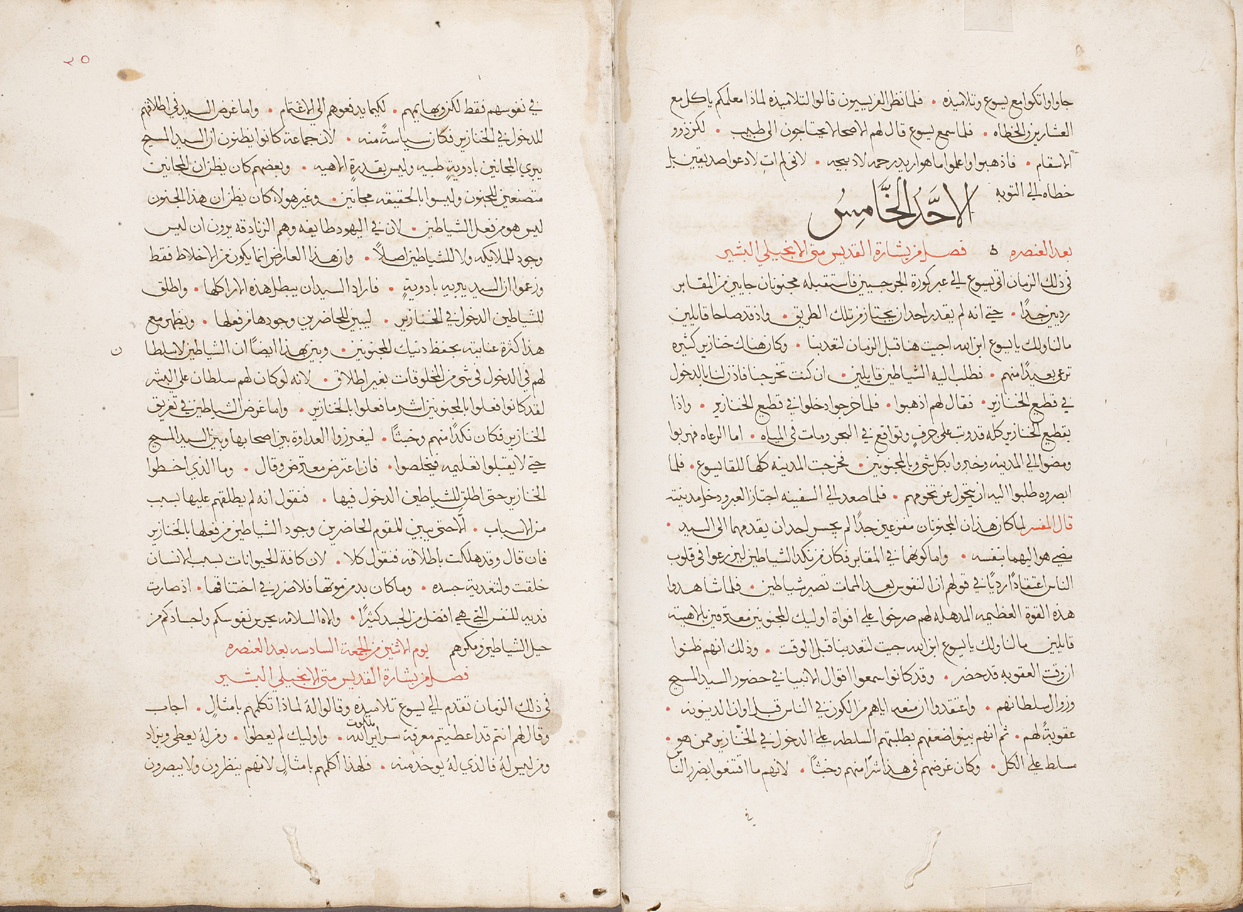 جاوا واتكوا مع يسوع وتلاميذه • فلما نظر الفريسيون قالوا لتلاميذه لماذا معلمكم ياكل مع
العشارين والخطاه • فلما سمع يسوع قال لهم الاصحا لا يحتاجون الى طبيب • لكن ذوو
الاسقام • فاذهبوا واعلموا ما هو اريد رحمه لا ذبيحه • لاني لم ات لادعوا صديقين بل
خطاه الى التوبه
الاحد الخامس
بعد العنصره فصل من بشارة القديس متى الانجيلي البشير
في ذلك الزمان اتى يسوع الى عبر كورة الجرجسيين فاستقبله مجنونان جايين من المقابر
رديين جدًا • حتى انه لم يقدر احد ان يجتاز من تلك الطريق • واذ قد صاحا قايلين
ما لنا ولك يا يسوع ابن الله اجيت هنا قبل الزمان لتعذبنا • وكان هناك خنازير كثيره
ترعى بعيدًا منهم • فطلب اليه الشياطين قايلين • ان كنت تخرجنا فاذن لنا بالدخول
في قطيع الخنازير • فقال لهم اذهبوا • فلما خرجوا دخلوا في قطيع الخنازير • واذا
بقطيع الخنازير كله قد وثب على جرف وتواقع في البحر ومات في المياه • اما الرعاه فهربوا
ومضوا الى المدينه وخبروا بكل شي وبالمجنونين • فخرجت المدينه كلها للقا يسوع • فلما
ابصروه طلبوا اليه ان يتحول عن تخومهم • فلما صعد الى السفينه اجتاز العبر ودخل مدينته
قال المفسر لما كان هذان المجنونان مفزعين جدًا لم يجسر احد ان يقدمهما الى السيد •
مضى هو اليهما بنفسه • واما كونهما في المقابر فكان من نكد الشياطين ليزرعوا في قلوب
الناس اعتقادًا رديًا في قولهم ان النفوس بعد الممات تصير شياطين • فلما شاهدوا
هذه القوة العظيمه المذهله لهم صرخوا على افواة اوليك المجنونين معترفين بالاهيته
قايلين ما لنا ولك يا يسوع ابن الله جيت لتعذبنا قبل الوقت • وذلك انهم ظنوا
ان وقت العقوبه قد حضر • وقد كانوا سمعوا اقوال الانبيا في حضور السيد المسيح
وزوال سلطانهم • واعتقدوا ان منعه اياهم من الكون في الناس قبل اوان الدينونه •
عقوبةً لهم • ثم انهم بينوا ضعفهم بطلبتهم السلطه على الدخول في الخنازير ممن هو •
سلط على الكل • وكان غرضهم في هذا شرًا منهم وخبثًا • لانهم ما اقتنعوا بضرر الناس
٢٥
في نفوسهم فقط لكن وبهايمهم • لكيما يدفعوهم الى الاغتمام • واما غرض السيد في اطلاقهم
للدخول في الخنازير فكان سياسةً منه • لان جماعة كانوا يظنون ان السيد المسيح
يبري المجانين بادويةٍ طبيه وليس بقدرةٍ الاهيه • وبعضهم كان يظن ان المجانين
متصنعين للجنون وليسوا بالحقيقه مجانين • وغير هولا كان يظن ان هذا الجنون
ليس هو من فعل الشياطين • لان في اليهود طايفه وهم الزنادقه يرون ان ليس
وجود للملايكه ولا للشياطين اصلاً • وان هذا العارض انما يكون من الاخلاط فقط
وزعموا ان السيد يبريه بادويةٍ • فاراد السيد ان يبطل هذه الاراكلها • واطلق
للشياطين الدخول في الخنازير • ليبين للحاضرين وجودها من فعلها • ويظهر مع
هذا كثرة عنايته بحفظ ذنيك المجنونين • وبين بهذا ايضًا ان الشياطين لا سلطا
ن
لهم في الدخول في شي من المخلوقات بغير اطلاق • لانه لو كان لهم سلطان على البشر
لقد كانوا فعلوا بالمجنونين اشر ما فعلوا بالخنازير • واما غرض الشياطين في تغريق
الخنازير فكان نكدًا منهم وخبثًا • ليغرزوا العداوة بين اصحابها وبين السيد المسيح
حتى لا يقبلوا تعليمه فيخلصوا • فان اعترض معترض وقال • وما الذي اخطوا
الخنازير حتى اطلق للشياطين الدخول فيها • فنقول انه لم يطلقهم عليها بسبب
من الاسباب • الا حتى يبين للقوم الحاضرين وجود الشياطين من فعلها بالخنازير
فان قال وقد هلكت باطلاقه فنقول كلا • لان كافة الحيوانات بسبب الانسان
خلقت ولتغدية جسده • وما كان بد من موتها فلا ضرر في اختناقها • اذ صارت
فديه للنفس التي هي افضل من الجسد كثيرًا • والاه السلامه يحرس نفوسكم واجسادكم من
حيل الشياطين ومكرهم يوم الاثنين من الجمعة السادسه بعد العنصره
فصل من بشارة القديس متى الانجيلي البشير
في ذلك الزمان تقدم الى يسوع تلاميذه وقالوا لهُ لماذا تكلمهم بامثالٍ • اجاب
وقال لهم انتم قد اعطيتم معرفة سراير ملكوت الله • واوليك لم يعطوا • ومن لهُ يعطى ويزاد
ومن ليس لهُ فالذي لهُ يوخذ منه • فلهذا اكلمهم بامثالٍ لانهم ينظرون ولا يبصرون